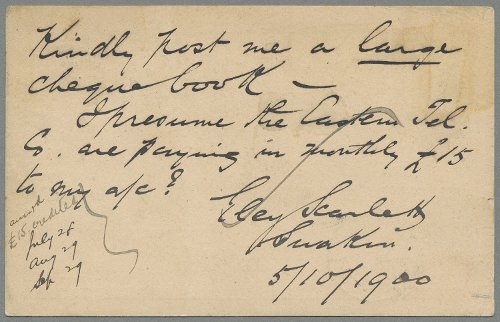 Kindly post me a large
cheque book —
I presume the Eastern Tel.
Co. are paying in monthly £15
to my a/c?
Scarlett
Suakin.
5/10/1900
£15 credited
July 28
Aug 29
Sep 29